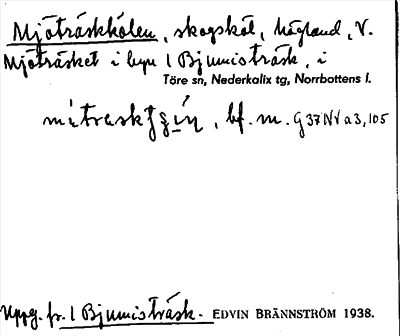 Mjöträskkölen, skogsköl, högland, V.
Mjöträsket i byn 1 Bjumisträsk, i
Töre sn, Nederkalix tg, Norrbottens l.
bf. m. G37NVa3,105
Uppg. fr. 1 Bjumisträsk. EDVIN BRÄNNSTRÖM 1938.